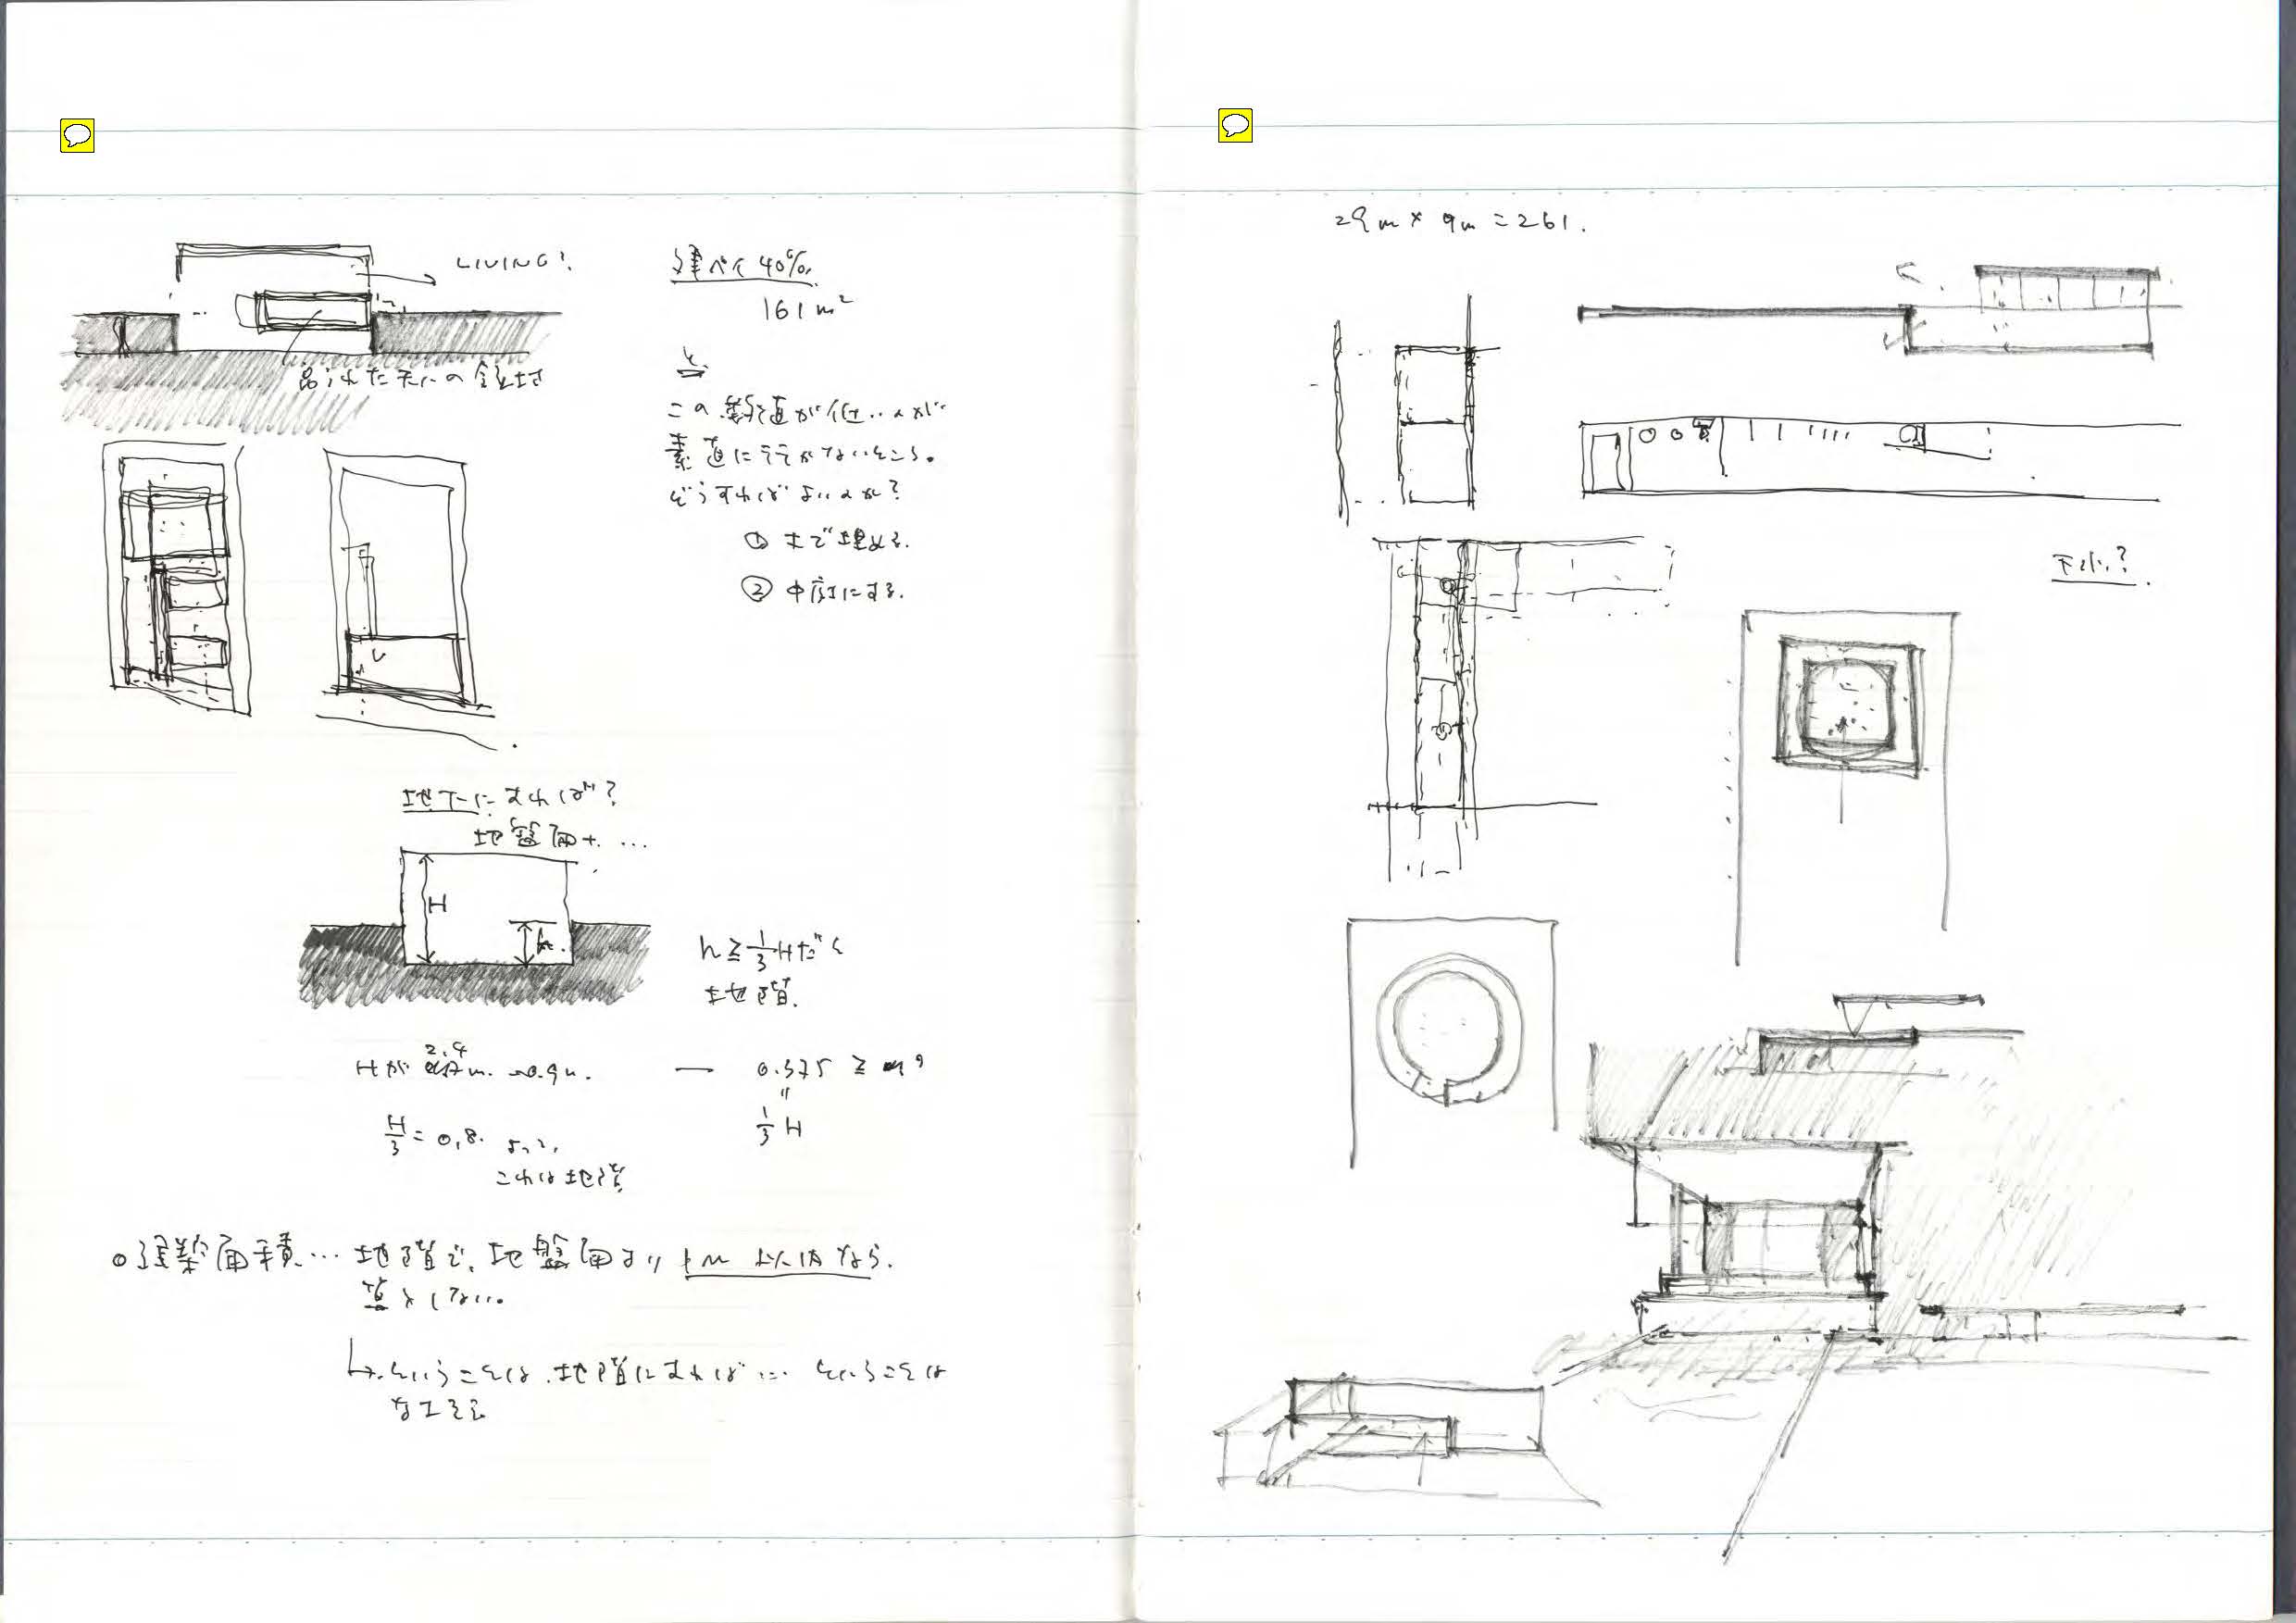 LIVING?
建ペイ 40%
161 m²
と
この数値が低いのが
素直にうごかないところ。
どうすればよいのか?
① 土で埋める.
② 中庭にする.
地下にすれば?
地盤面+...
H
h.
h ≧ 1/3 Hだと
地階.
2.4
Hが m. →0.9m.
— 0.375 ≧
"
1/3 H
H/3 = 0.8. よって,
これは地階
○建築面積… 地階で, 地盤面より 1m 以内なら.
算入しない。
↳ ということは、地階にすれば… ということは
29m × 9m = 261.